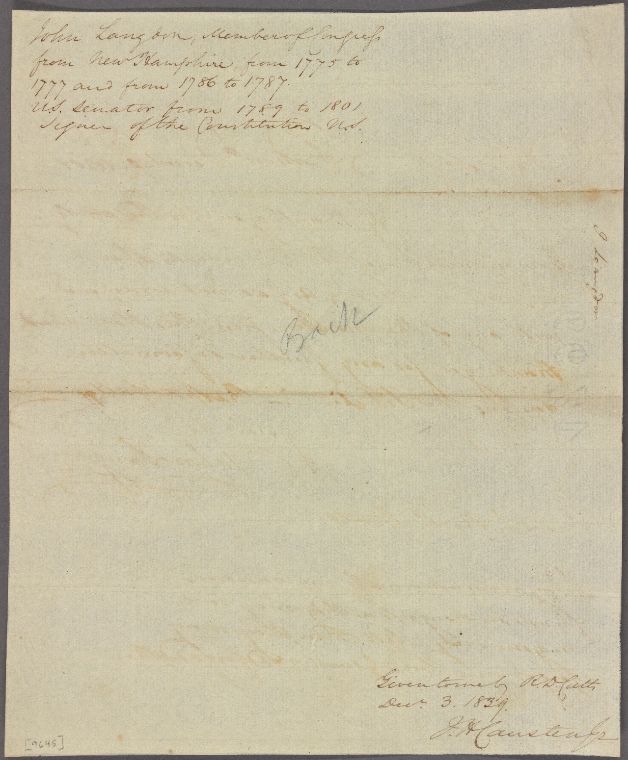 John Langdon, Member of Congress
from New Hampshire from 1775 to
1777 and from 1786 to 1787.
U.S. Senator from 1789 to 1801
Signer of the Constitution U.S.
J Langdon
Back
Given to me by R. D. Cutts
Decr. 3. 1839.
J. H. Causten Jr
[9645]